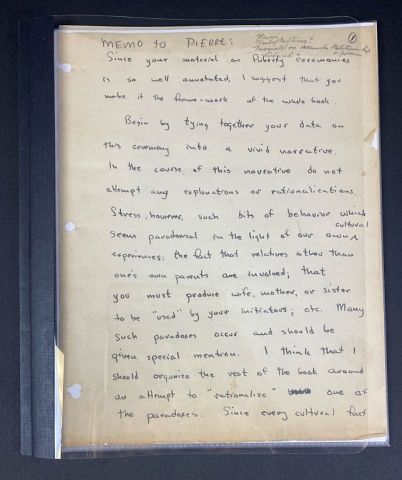 MEMO to PIERRE:
①
Since your material on Puberty ceremonies
is so well annotated, I suggest that you
make it the frame-work of the whole book.
Begin by tying together your data on
this ceremony into a vivid narrative.
In the course of this narrative do not
attempt any explanations or rationalizations.
Stress, however, such bits of behavior which
seem paradoxical in the light of our own cultural
experiences: the fact that relatives other than
one's own parents are involved; that
you must produce wife, mother, or sister
to be "used" by your initiators; etc. Many
such paradoxes occur and should be
given special mention. I think that I
should organize the rest of the book around
an attempt to "rationalize" one of
the paradoxes. Since every cultural fact